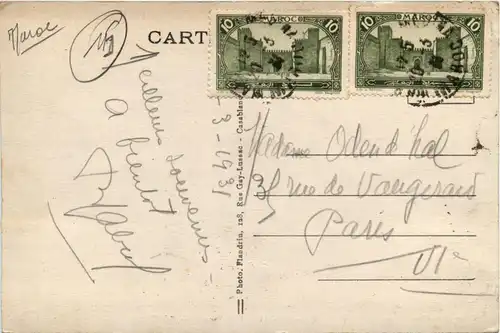 Maroc
CART
10 MAROC 10
10 MAROC 10
Meilleurs souvenirs
A bientôt
3-193
Photo. Flandrin, 128, Rue Gay-Lussac - Casablanca
Madame Odend'hal
rue de Vaugirard
Paris
VIe